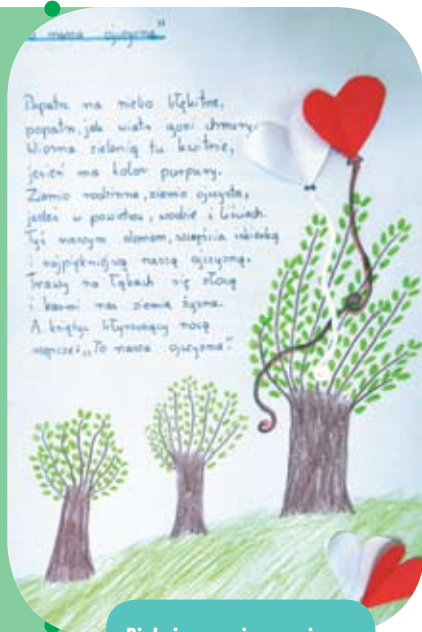 nasza ojczyzna"
Popatrz na niebo błękitne,
popatrz, jak wiatr goni chmury.
Wiosna zielenią tu kwitnie,
jesień ma kolor purpury.
Ziemio rodzinna, ziemio ojczysta,
jesteś w powietrzu, wodzie i
Tyś naszym domem,
i najpiękniejszą naszą ojczyzną.
Trawy na łąkach się złocą
i karmi nas ziemia żyzna.
A księżyc błyszczący nocą
szepcze: „To nasza ojczyzna".